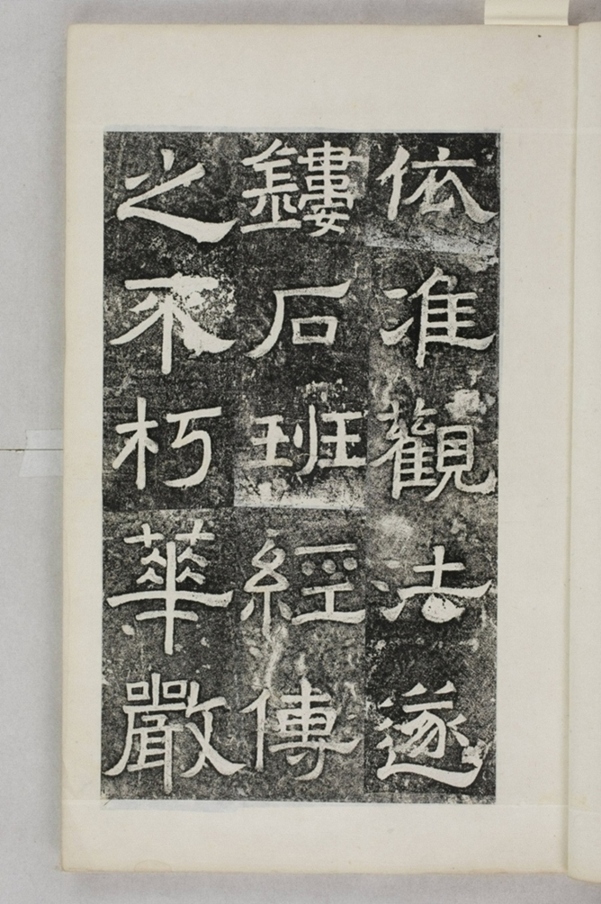 依准觀法遂
鏤石班經傳
之不朽華嚴